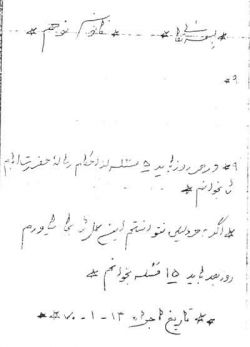 بسمه تعالی * .... قانون نهم *
۹
۹* در هر روز باید ۵ مسئله از احکام رساله حضرت امام
را بخوانم *
* اگر به هر دلیلی نتوانستم این عمل را بجا بیاورم
روز بعد باید ۱۵ مسئله بخوانم *
** تاریخ اجراء ۱۳ - ۱ - ۷۰ **